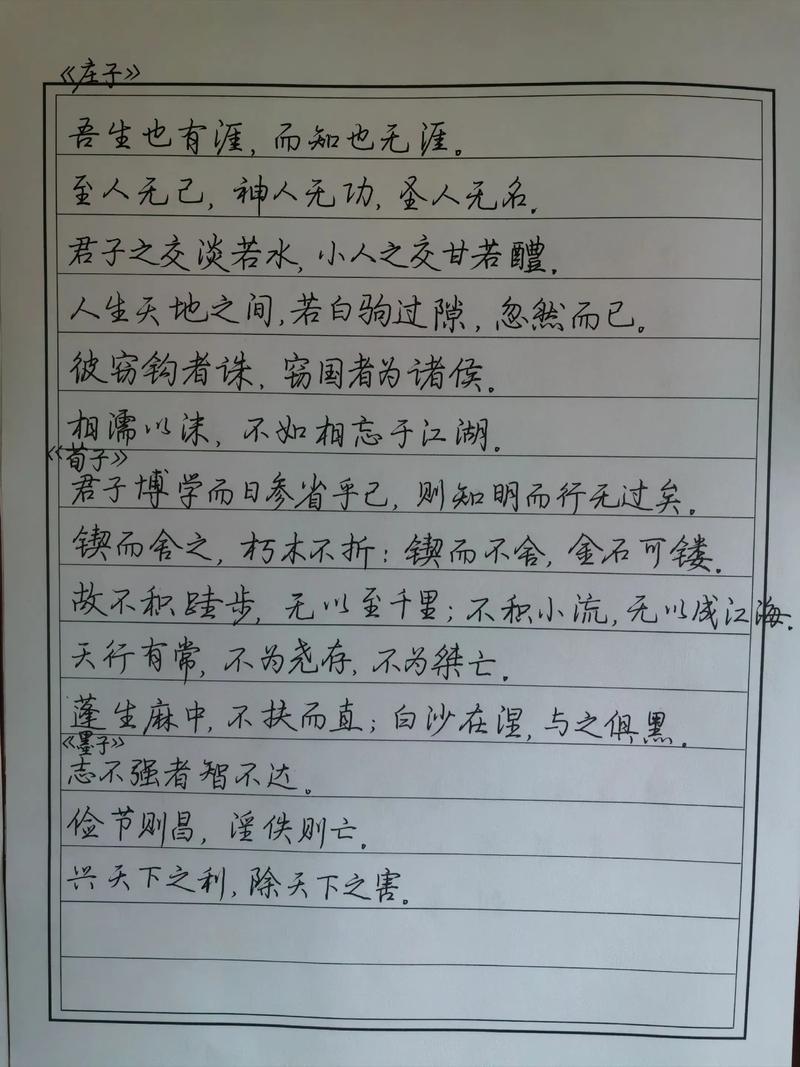 《庄子》
吾生也有涯，而知也无涯。
至人无己，神人无功，圣人无名。
君子之交淡若水，小人之交甘若醴。
人生天地之间，若白驹过隙，忽然而已。
彼窃钩者诛，窃国者为诸侯。
相濡以沫，不如相忘于江湖。
《荀子》
君子博学而日参省乎己，则知明而行无过矣。
锲而舍之，朽木不折；锲而不舍，金石可镂。
故不积跬步，无以至千里；不积小流，无以成江海。
天行有常，不为尧存，不为桀亡。
蓬生麻中，不扶而直；白沙在涅，与之俱黑。
《墨子》
志不强者智不达。
俭节则昌，淫佚则亡。
兴天下之利，除天下之害。